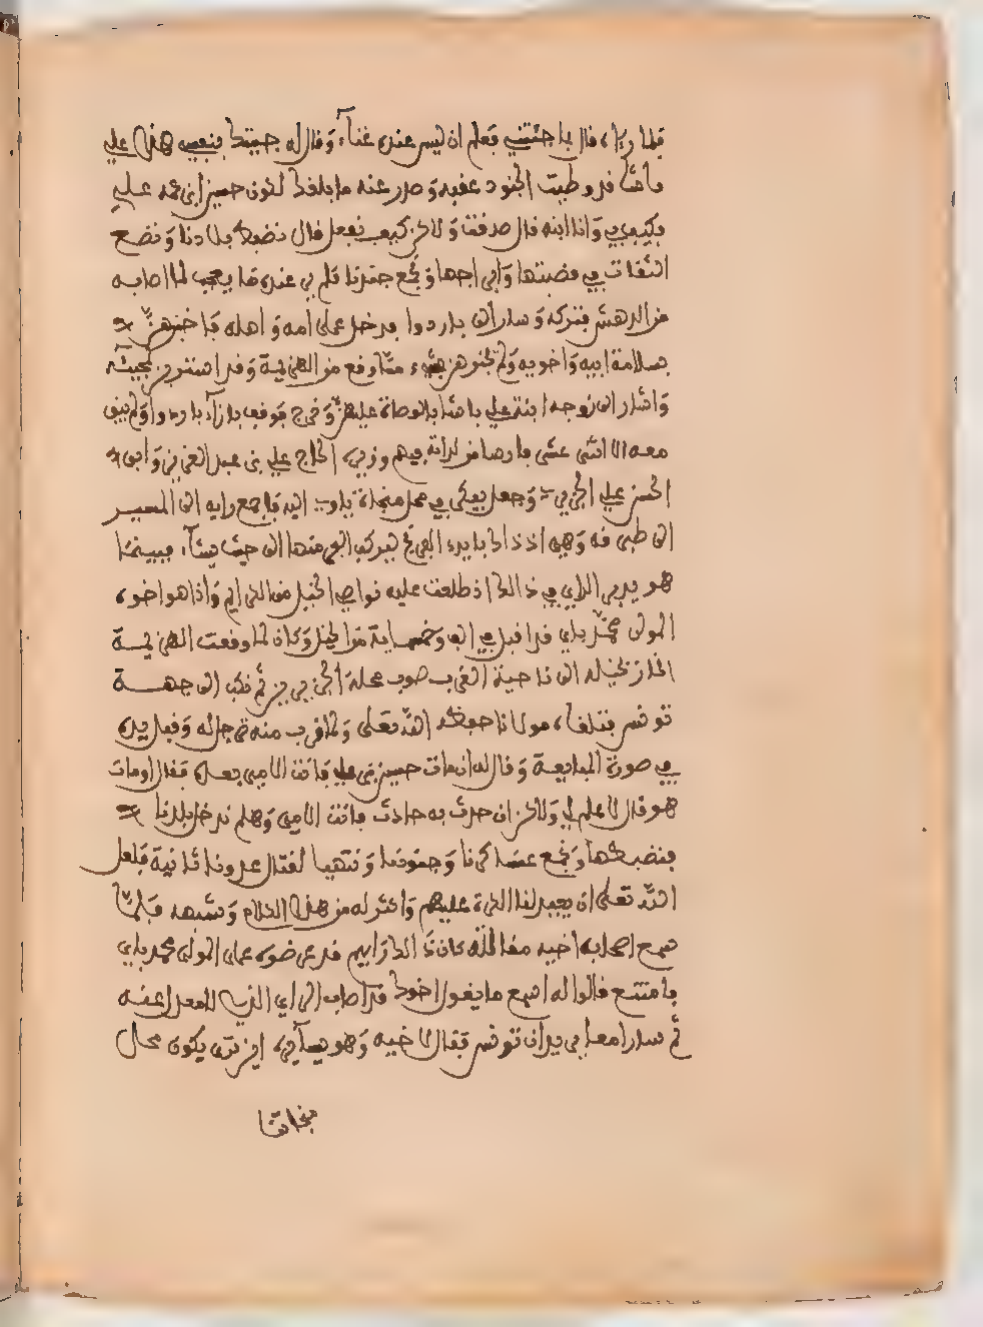 فلما رءاه قال يا جنتي فعلم ان ليس عنده غناء وقال له حسبتك بنفسي هذا علي
باشا قد وطيت الجنود عقبه وصدر عنه ما بلغك لكون حسين ابن عمه علي
وانا ابنه قال صدقت ولاكن كيف نفعل قال نضبط بلادنا ونضع
الثقات في قصبتها وابراجها ونجمع جندنا فلم ير عنده ما يعجب لما اصابه
من الدهش فتركه وسار الى باردوا فدخل على امه واهله فاخبرهن
بسلامة ابيه واخويه ولم يخبرهن بشيء مما وقع من الهزيمة وقد استترن بمجيئه
واشار الى زوجه ابنة علي باشا بالوصاة عليهن وخرج فوقف بازاء باردوا ولم يبق
معه الا اثنى عشر فارسا من فيهم وزيره الحاج علي بن عبد العزيز وابو
الحسن علي وجعل يفكر في محل منجاة ياوي اليه فاجمع رايه الى المسير
الى طبرقه وهي اذ ذاك بايدي الفرنج ليركب البحر منها الى حيث يشاء فبينما
هو يدير الراي في ذالك اذ طلعت عليه نواصي الخيل من واذا هو اخوه
المولى محمد باي قد اقبل في الف وخمسماية من الخيل وكان لما وقعت الهزيمة
انحاز بخيله الى ناحية الغرب صوب محلة ثم نكب الى جهة
تونس فتلقاه مولانا حفظه الله تعلى ولما قرب منه ترجل له وقبل يده
في صورة المبايعة وقال له ان مات حسين بن علي فانت الامير بعده فقال اومات
هو قال لا علم لي ولاكن ان حدث به حادث فانت الامير وهلم ندخل بلدنا
فنضبطها ونجمع عساكرنا وجنودنا ونتهيا لقتال عدونا ثانية فلعل
الله تعلى ان يجعل لنا الكرة عليهم واكثر له من هذا الكلام وشبهه فلما
سمع اصحاب اخيه مقالته كان ذالك رايهم فعرضوه على المولى محمد باي
فامتنع فقالوا له اسمع ما يقول اخوك فقد اصاب الراي الذي لا معدل عنه
ثم سارا معا يريدان تونس فقال لاخيه وهو يسايره اين ترى يكون محل
نجاتنا